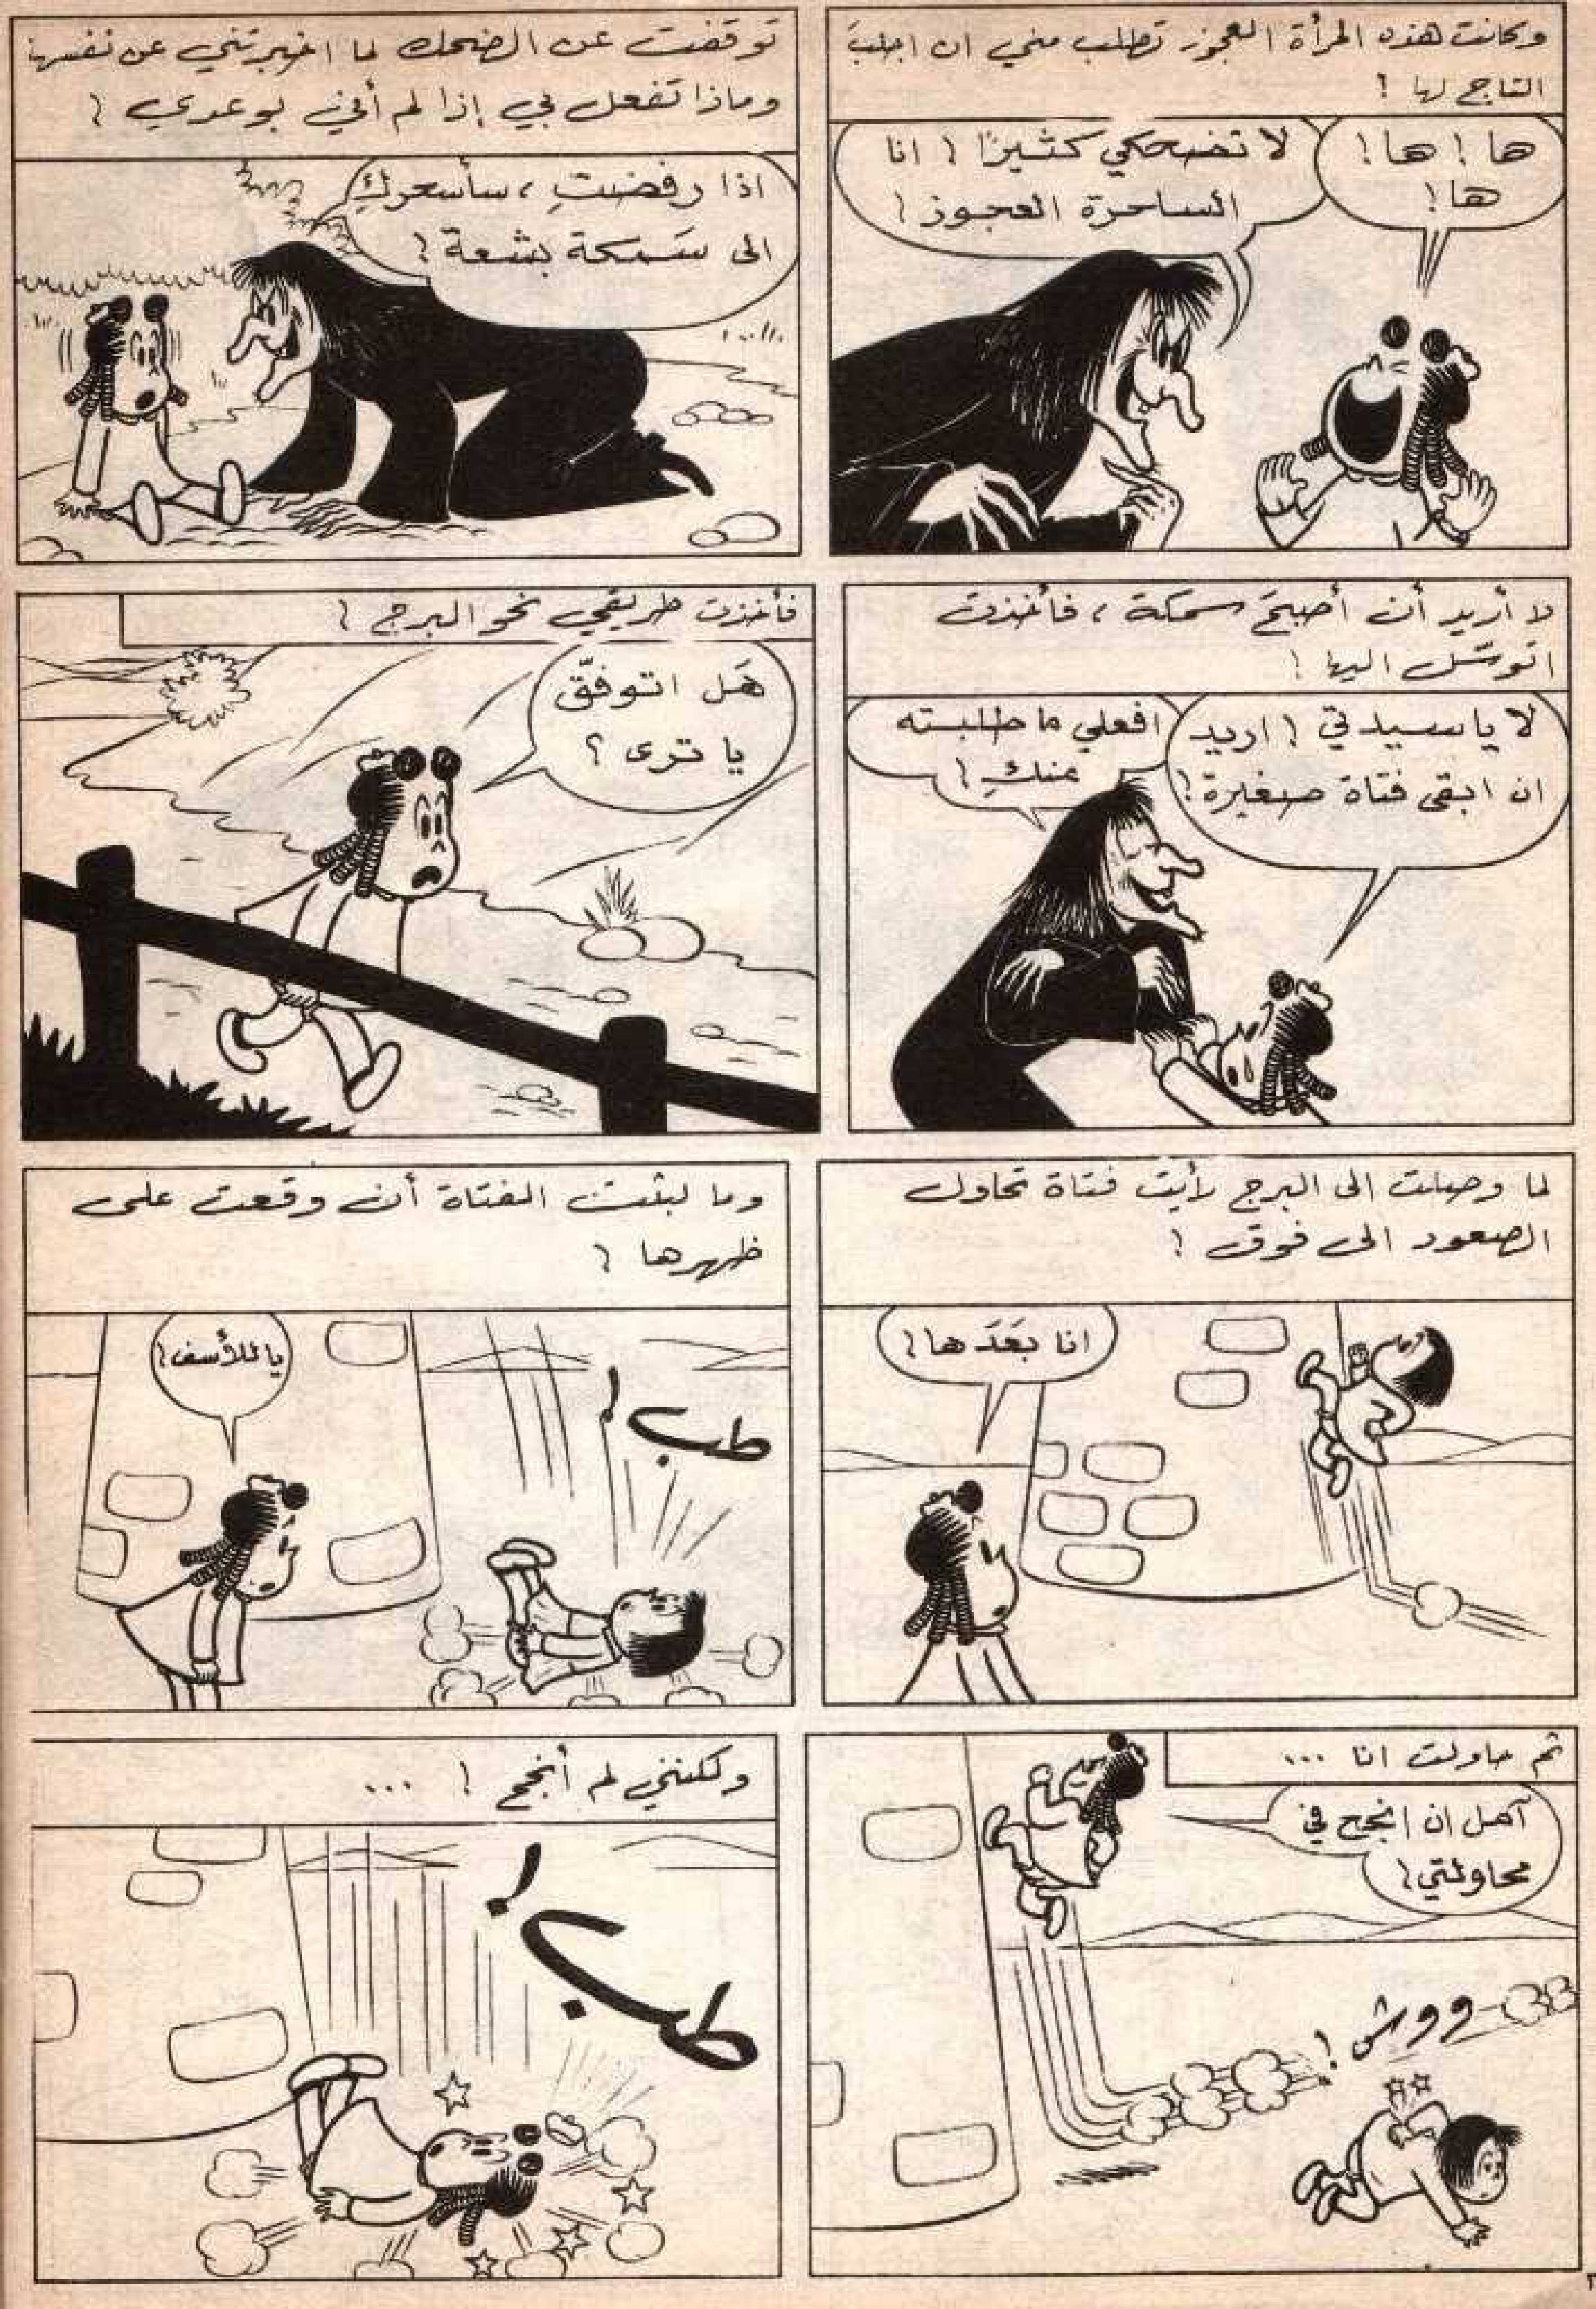 وكانت هذه المرأة العجوز تطلب مني ان اجلبَ
التاج لها !
ها ! ها !
ها !
لا تضحكي كثيرًا ! انا
الساحرة العجوز !
توقفت عن الضحك لما اخبرتني عن نفسها
وماذا تفعل بي إذا لم أفِ بوعدي !
اذا رفضتِ ، سأسحركِ
الى سَمكة بشعة !
لا أريد أن أصبحَ سمكة ، فأخذت
اتوسّل اليها !
لا يا سيدتي ! اريد
ان ابقى فتاة صغيرة !
افعلي ما طلبته
منكِ !
فأخذت طريقي نحو البرج !
هَل اتوفّق
يا ترى ؟
لما وصلت الى البرج رأيت فتاة تحاول
الصعود الى فوق !
انا بَعَدَها !
وما لبثت الفتاة أن وقعت على
ظهرها !
يا للأسف !
طب !
ثم حاولت انا ...
آمل ان انجح في
محاولتي !
ووش !
ولكنني لم أنجح ! ...
طب !